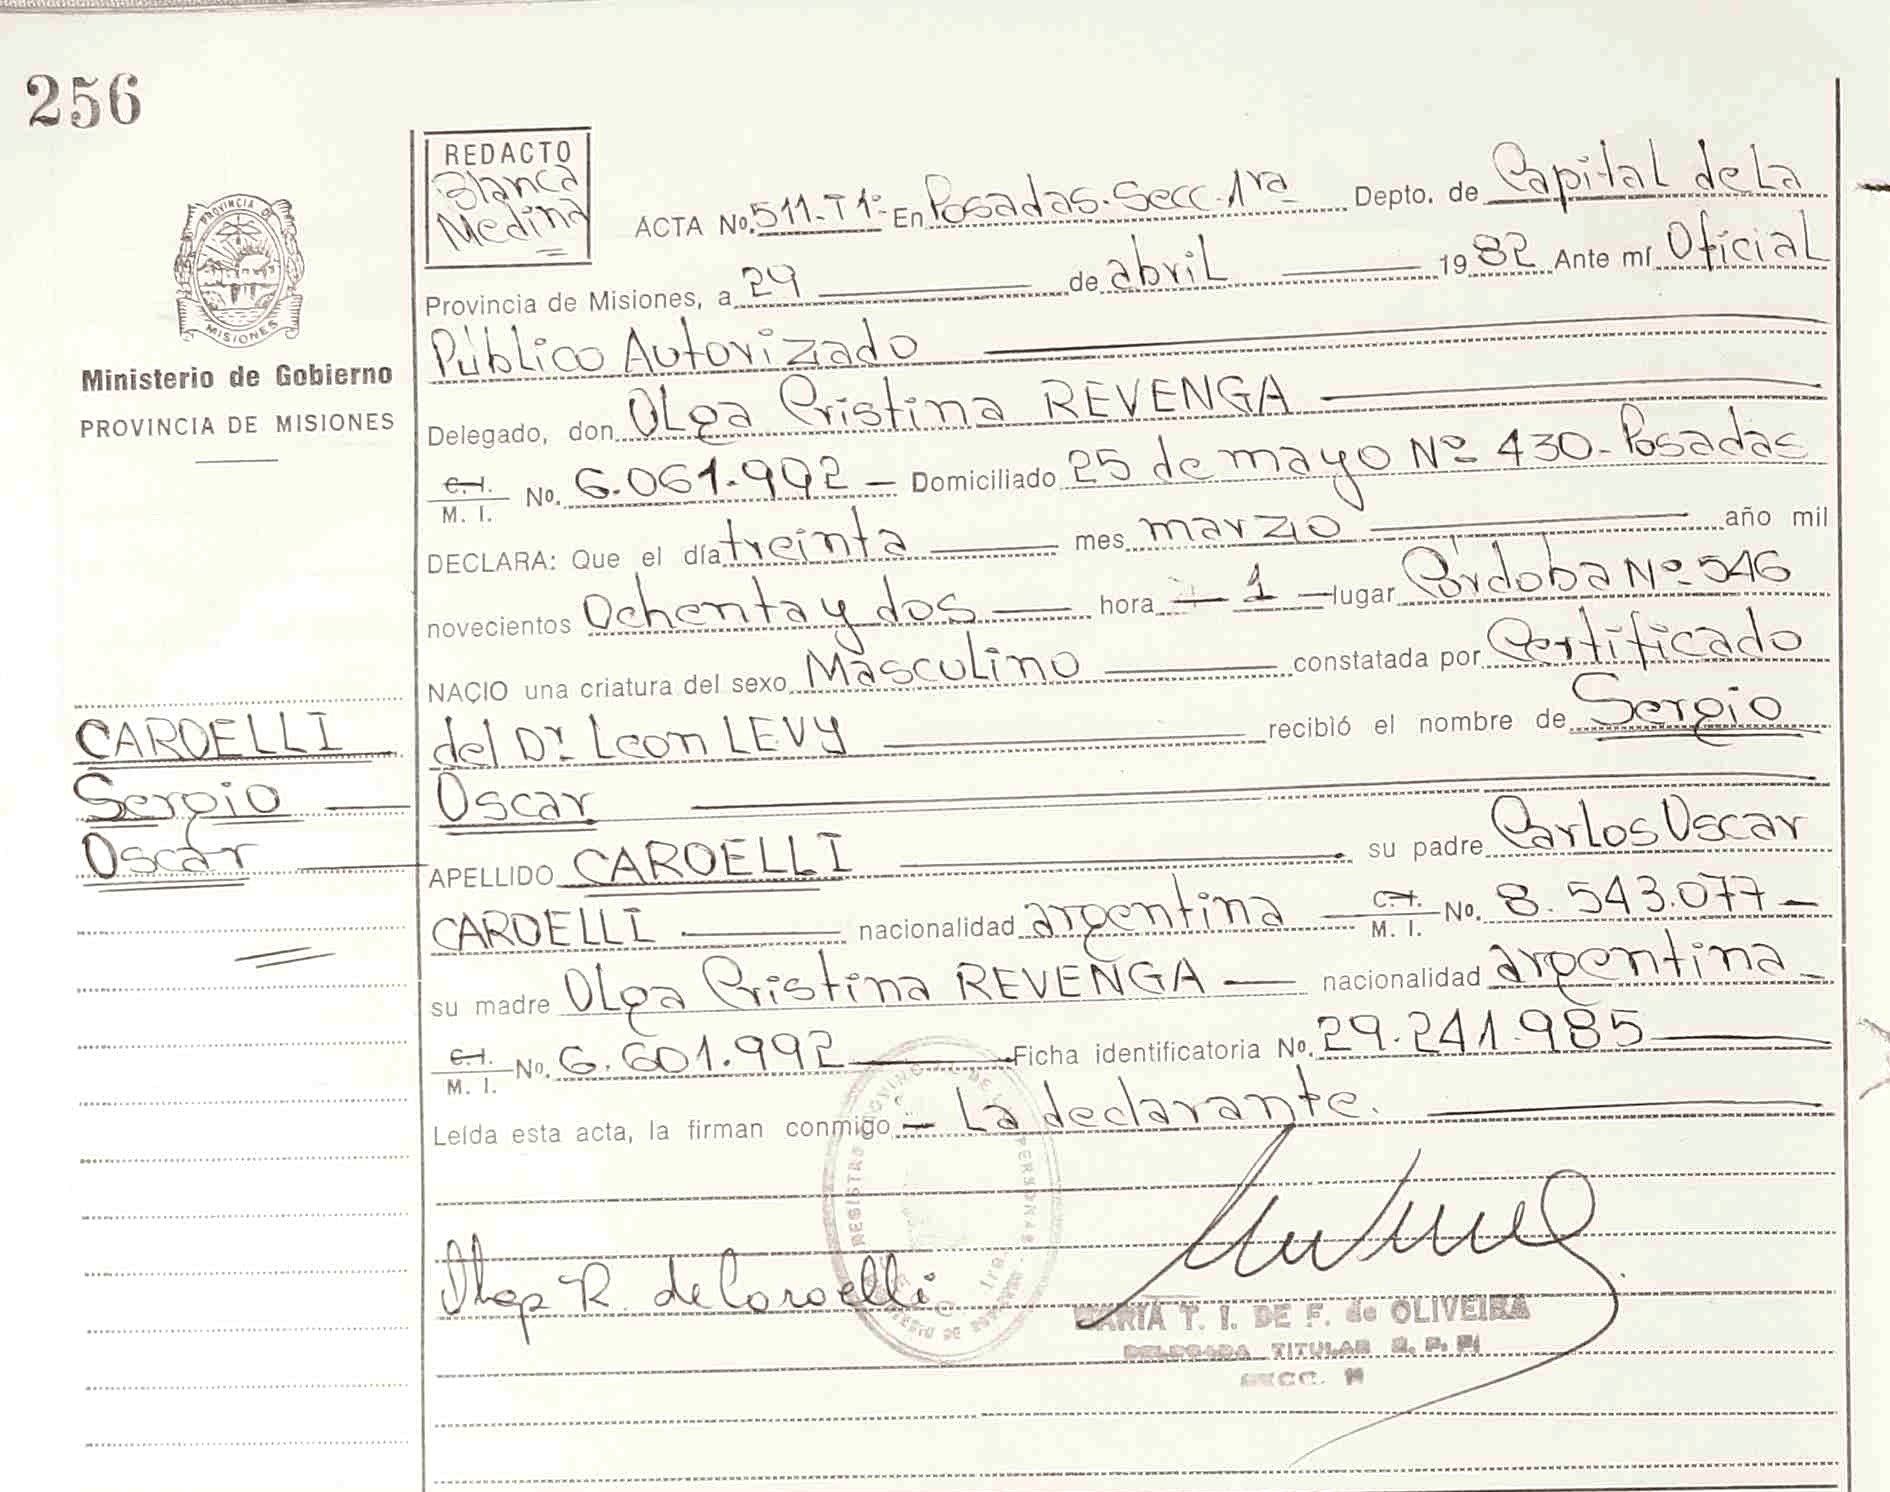 256
REDACTO
Blanca
Medina
PROVINCIA DE
MISIONES
Ministerio de Gobierno
PROVINCIA DE MISIONES
ACTA No. 511-T1º- En Posadas-Secc. 1ra Depto. de Capital de La
Provincia de Misiones, a 29 de abril 1982 Ante mí Oficial
Público Autorizado
Delegado, don Olga Cristina REVENGA
C.I. M.I. No. 6.061.992 - Domiciliado 25 de mayo Nº 430-Posadas
DECLARA: Que el día treinta mes marzo año mil
novecientos Ochenta y dos hora 1 lugar Córdoba Nº 546
NACIO una criatura del sexo Masculino constatada por Certificado
del Dr. Leon LEVY recibió el nombre de Sergio
Oscar
CARDELLI
Sergio
Oscar
APELLIDO CARDELLI su padre Carlos Oscar
CARDELLI nacionalidad argentina C.I. M.I. No. 8.543.077-
su madre Olga Cristina REVENGA nacionalidad argentina
C.I. M.I. No. 6.601.992 Ficha identificatoria No. 29.241.985
Leída esta acta, la firman conmigo - La declarante.
Olga R. de Cardelli
MARIA T. I. DE F. de OLIVEIRA
DELEGADA TITULAR R. P. P.
SECC.